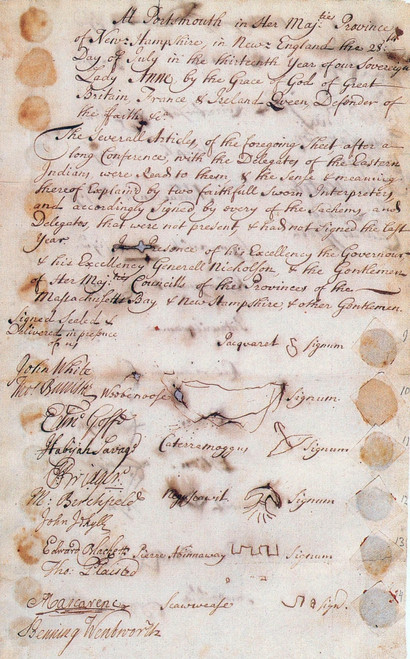 At Portsmouth in Her Maj.ties Province
of New-Hampshire, in New-England the 28.th
Day of July in the thirteenth Year of our Sovereign
Lady Anne, by the Grace of God of Great
Britain France & Ireland Queen Defender of
the Faith &c.
The Severall Articles, of the foregoing Sheet after a
long Conference, with the Delegates of the Eastern
Indians, were Read to them, & the Sense & meaning
thereof Explain'd by two faithfull Sworn Interpreters,
and accordingly Signed by every of the Sachems, and
Delegates that were not present & had not Signed the last
Year. 
of his Excellency the Governour
& his Excellency Generall Nicholson, & the Gentlemen
of Her Maj.ties Councills of the Provinces of the
Massachusetts Bay & New Hampshire & other Gentlemen.
Signed Sealed &
Delivered in presence
of us
Jacquaret signum
9
John White
Woobenoose Signum
10
Edm.o Goffe
Habijah Savage Caterramoggus Signum
11
J Bridger
signum
12
John Jekyll
Edward Pierre Abinnaway Signum
13
Tho: Plaisted
Scawwease Sign.
14
Benning Wentworth